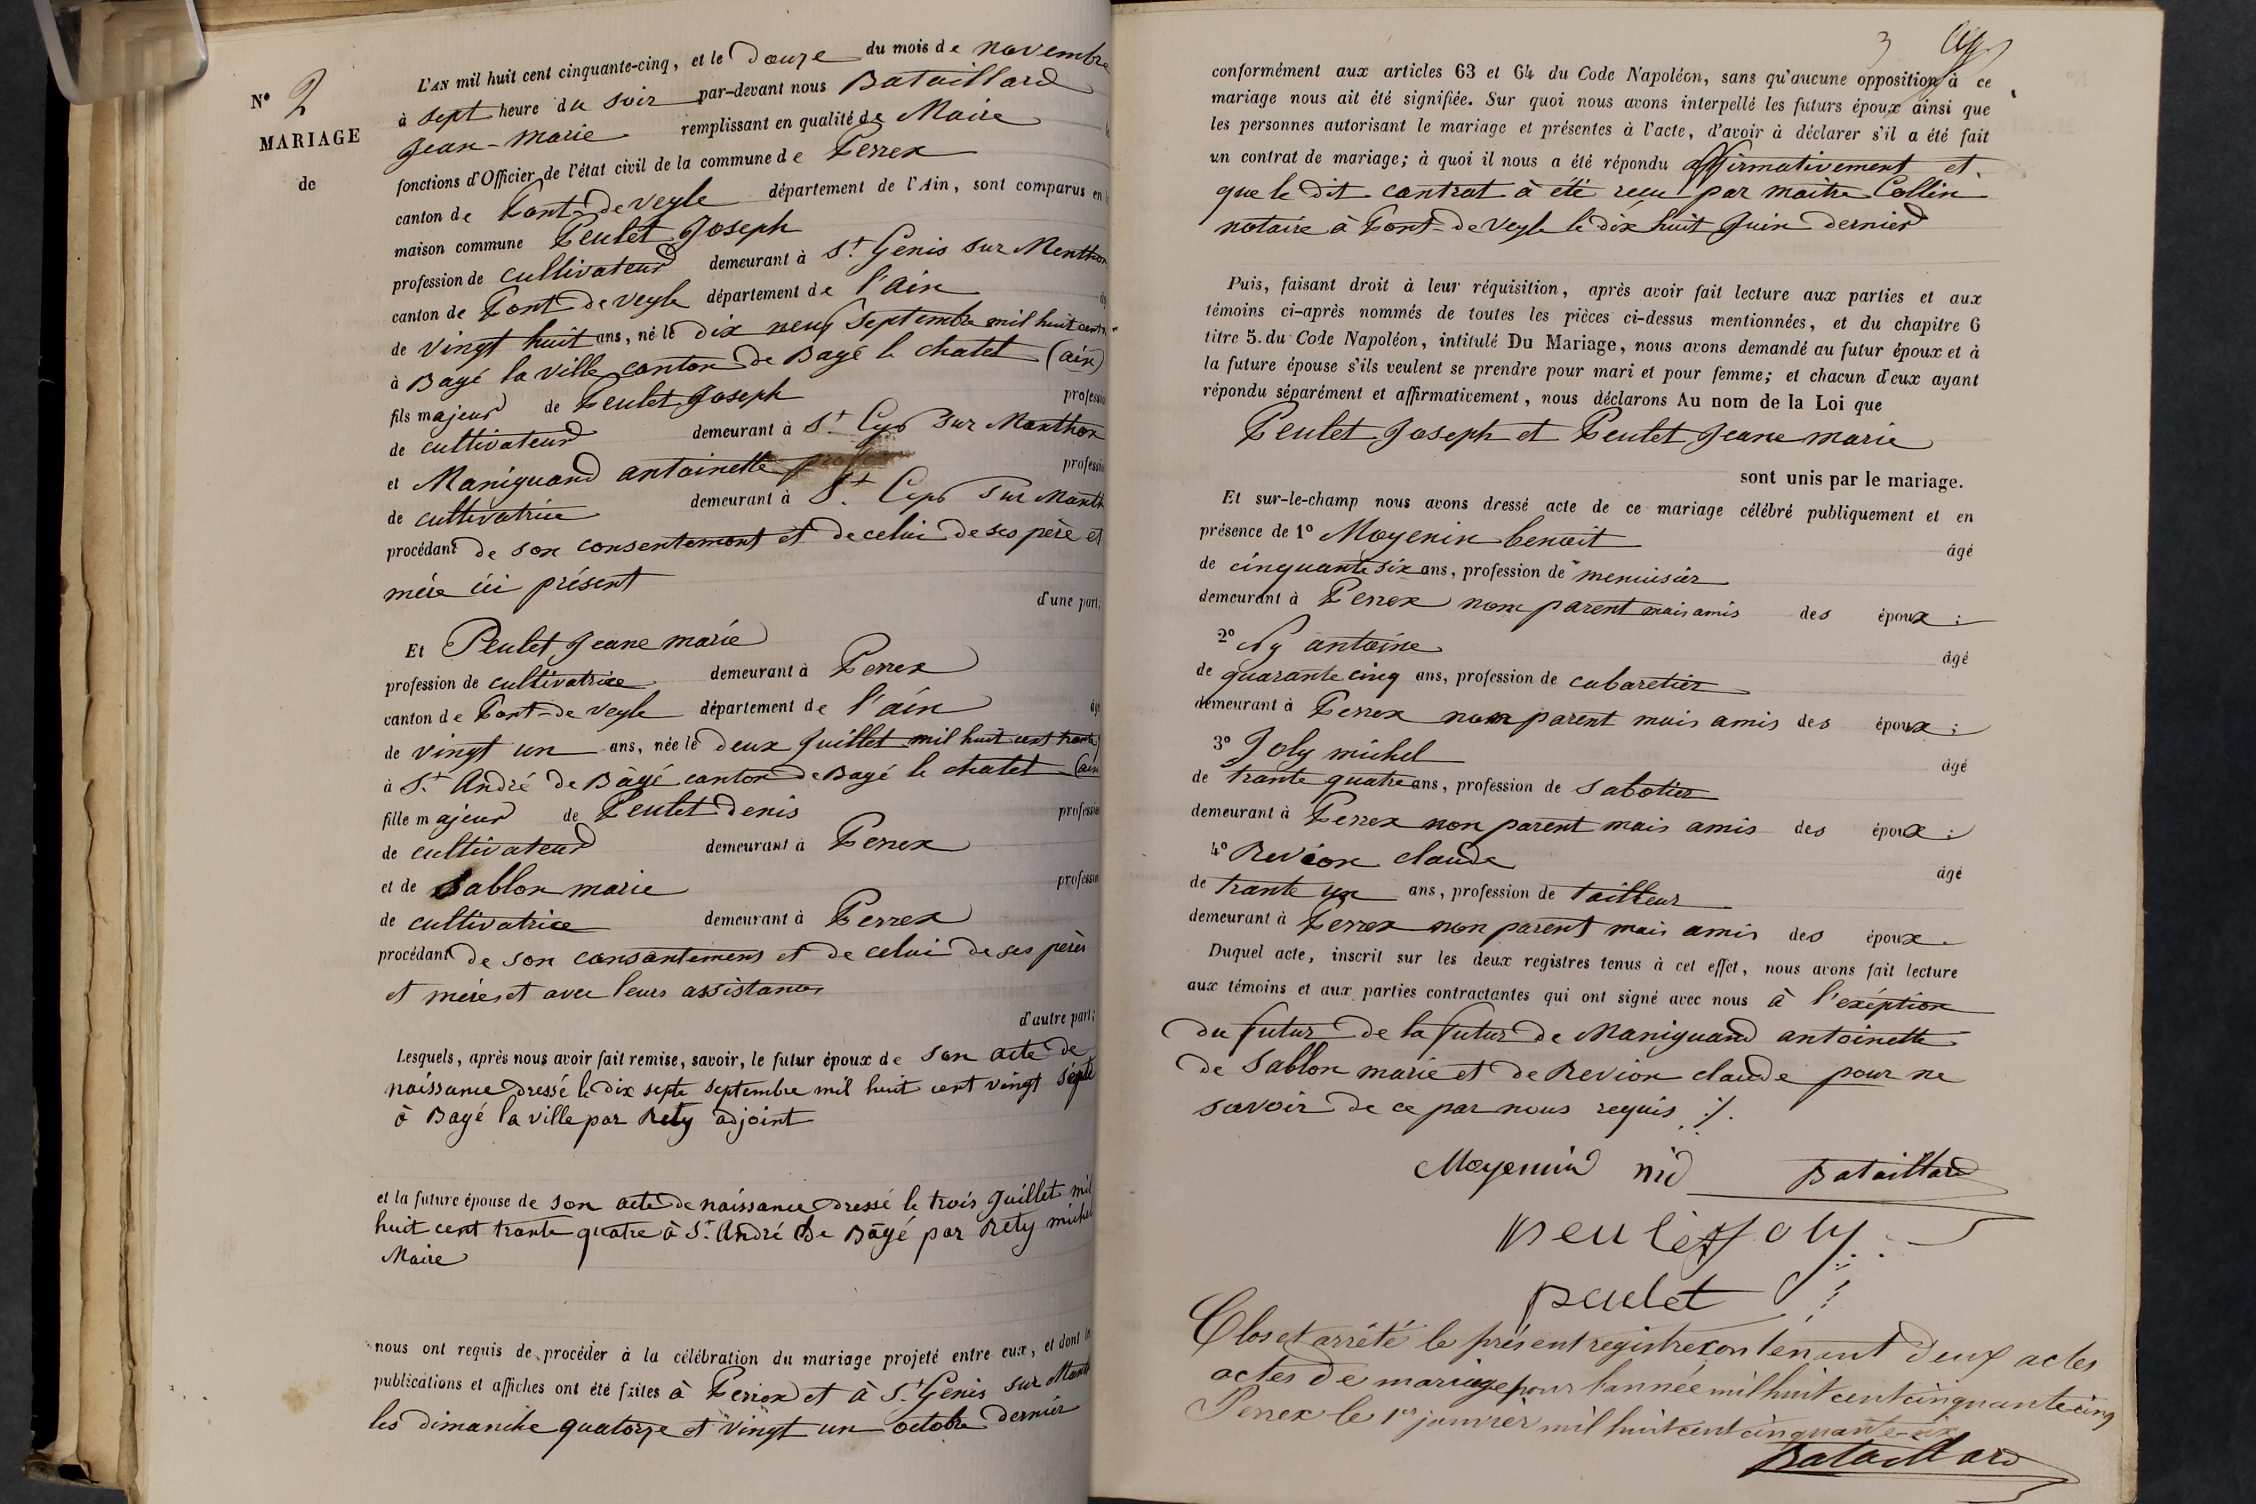 N° 2
MARIAGE
de
L'AN mil huit cent cinquante-cinq, et le Douze du mois de novembre
à sept heure du soir par-devant nous Bataillard
Jean-marie remplissant en qualité de Maire
fonctions d'Officier de l'état civil de la commune de Perrex
canton de Pont-de-veyle département de l'Ain, sont comparus en
maison commune Peulet Joseph
profession de cultivateur demeurant à St Genis sur Menthon
canton de Pont de veyle département de l'ain
de vingt huit ans, né le dix neuf Septembre mil huit cent
à Bagé la ville canton de Bagé le chatel (ain)
fils majeur de Peulet Joseph professio
de cultivateur demeurant à St Cyr sur Manthon
et Maniguand antoinette professio
de cultivatrice demeurant à St Cyr sur Manth
procédant de son consentement et de celui de ses père et
mère ici présent
d'une part;
Et Peulet Jeane marie
profession de cultivatrice demeurant à Perrex
canton de Pont-de veyle département de l'ain âg
de vingt un ans, née le deux Juillet mil huit cent trante
à St André de Bâgé canton de Bagé le chatel (ain
fille majeur de Peulet denis professio
de cultivateur demeurant à Perrex
et de Sablon marie professio
de cultivatrice demeurant à Perrex
procédant de son consantement et de celui de ses pères
et mères et avec leurs assistances
d'autre part;
Lesquels, après nous avoir fait remise, savoir, le futur époux de son acte de
naissance dressé le dix septe septembre mil huit cent vingt septe
à Bagé la ville par Rety adjoint
et la future épouse de son acte de naissance dressé le trois Juillet mil
huit cent trante quatre à St André de Bâgé par Rety michel
Maire
nous ont requis de procéder à la célébration du mariage projeté entre eux, et dont les
publications et affiches ont été faites à Perrex et à St Genis sur Manth
les dimanche quatorze et vingt un octobre dernier
3
conformément aux articles 63 et 64 du Code Napoléon, sans qu'aucune opposition à ce
mariage nous ait été signifiée. Sur quoi nous avons interpellé les futurs époux ainsi que
les personnes autorisant le mariage et présentes à l'acte, d'avoir à déclarer s'il a été fait
un contrat de mariage; à quoi il nous a été répondu affirmativement et
que le dit contrat à été recu par maitre Collin
notaire à Pont-de Veyle le dix huit Juin dernier
Puis, faisant droit à leur réquisition, après avoir fait lecture aux parties et aux
témoins ci-après nommés de toutes les pièces ci-dessus mentionnées, et du chapitre 6
titre 5. du Code Napoléon, intitulé Du Mariage, nous avons demandé au futur époux et à
la future épouse s'ils veulent se prendre pour mari et pour femme; et chacun d'eux ayant
répondu séparément et affirmativement, nous déclarons Au nom de la Loi que
Peulet Joseph et Peulet Jeane marie
sont unis par le mariage.
Et sur-le-champ nous avons dressé acte de ce mariage célébré publiquement et en
présence de 1° Moyenin benoit âgé
de cinquante six ans, profession de menuisier
demeurant à Perrex nom parent mais amis des époux;
2° Ny antoine âgé
de quarante cinq ans, profession de cabaretier
demeurant à Perrex nom parent mais amis des époux;
3° Joly michel âgé
de trante quatre ans, profession de Sabotier
demeurant à Perrex non parent mais amis des époux;
4° Revion claude âgé
de trante un ans, profession de tailleur
demeurant à Perrex non parent mais amis des époux.
Duquel acte, inscrit sur les deux registres tenus à cet effet, nous avons fait lecture
aux témoins et aux parties contractantes qui ont signé avec nous à l'exéption
du futur de la futur de Maniguand antoinette
de Sablon marie et de Revion claude pour ne
savoir de ce par nous requis ./.
Moyenin nid Bataillard
peulet Joly
peulet
Clos et arrêté le présent registre contenant deux actes
actes de mariage pour l'année mil huit cent cinquante cinq
Perrex le 1er janvier mil huit cent cinquante-six
Bataillard